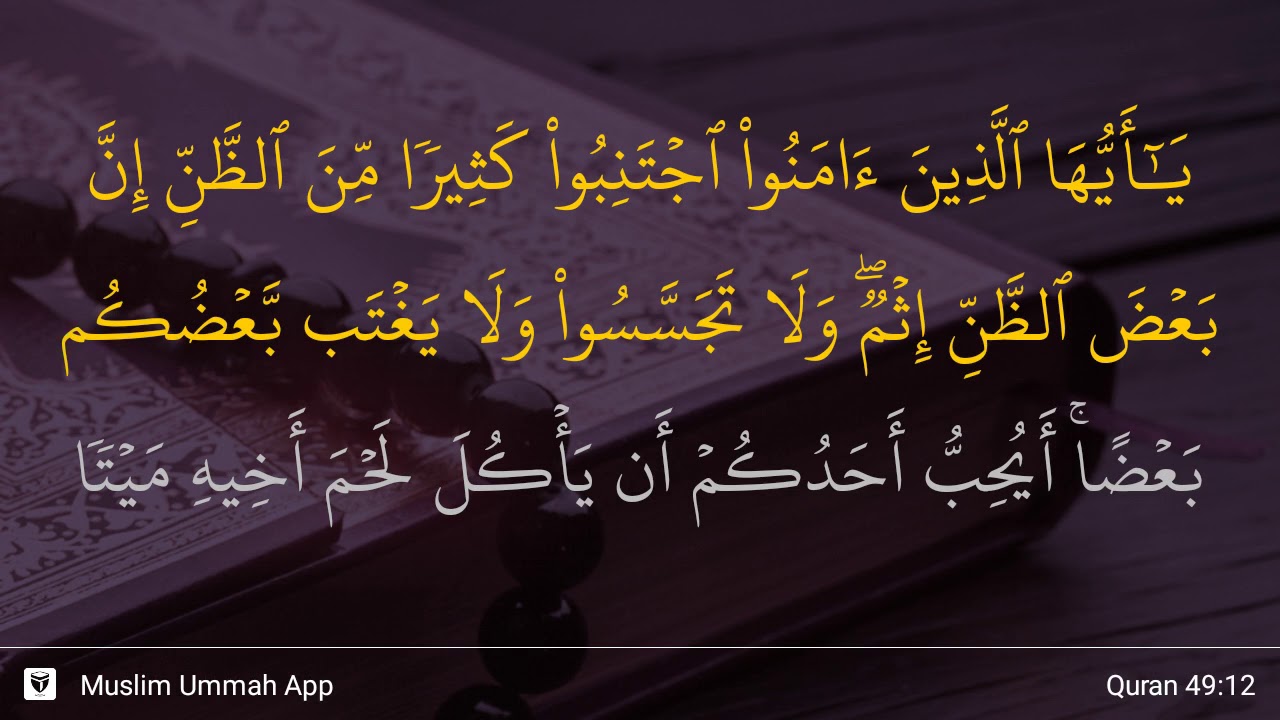 يَـٰٓأَيُّهَا ٱلَّذِينَ ءَامَنُوا۟ ٱجْتَنِبُوا۟ كَثِيرًا مِّنَ ٱلظَّنِّ إِنَّ
بَعْضَ ٱلظَّنِّ إِثْمٌ ۖ وَلَا تَجَسَّسُوا۟ وَلَا يَغْتَب بَّعْضُكُم
بَعْضًا ۚ أَيُحِبُّ أَحَدُكُمْ أَن يَأْكُلَ لَحْمَ أَخِيهِ مَيْتًا
Muslim Ummah App
Quran 49:12